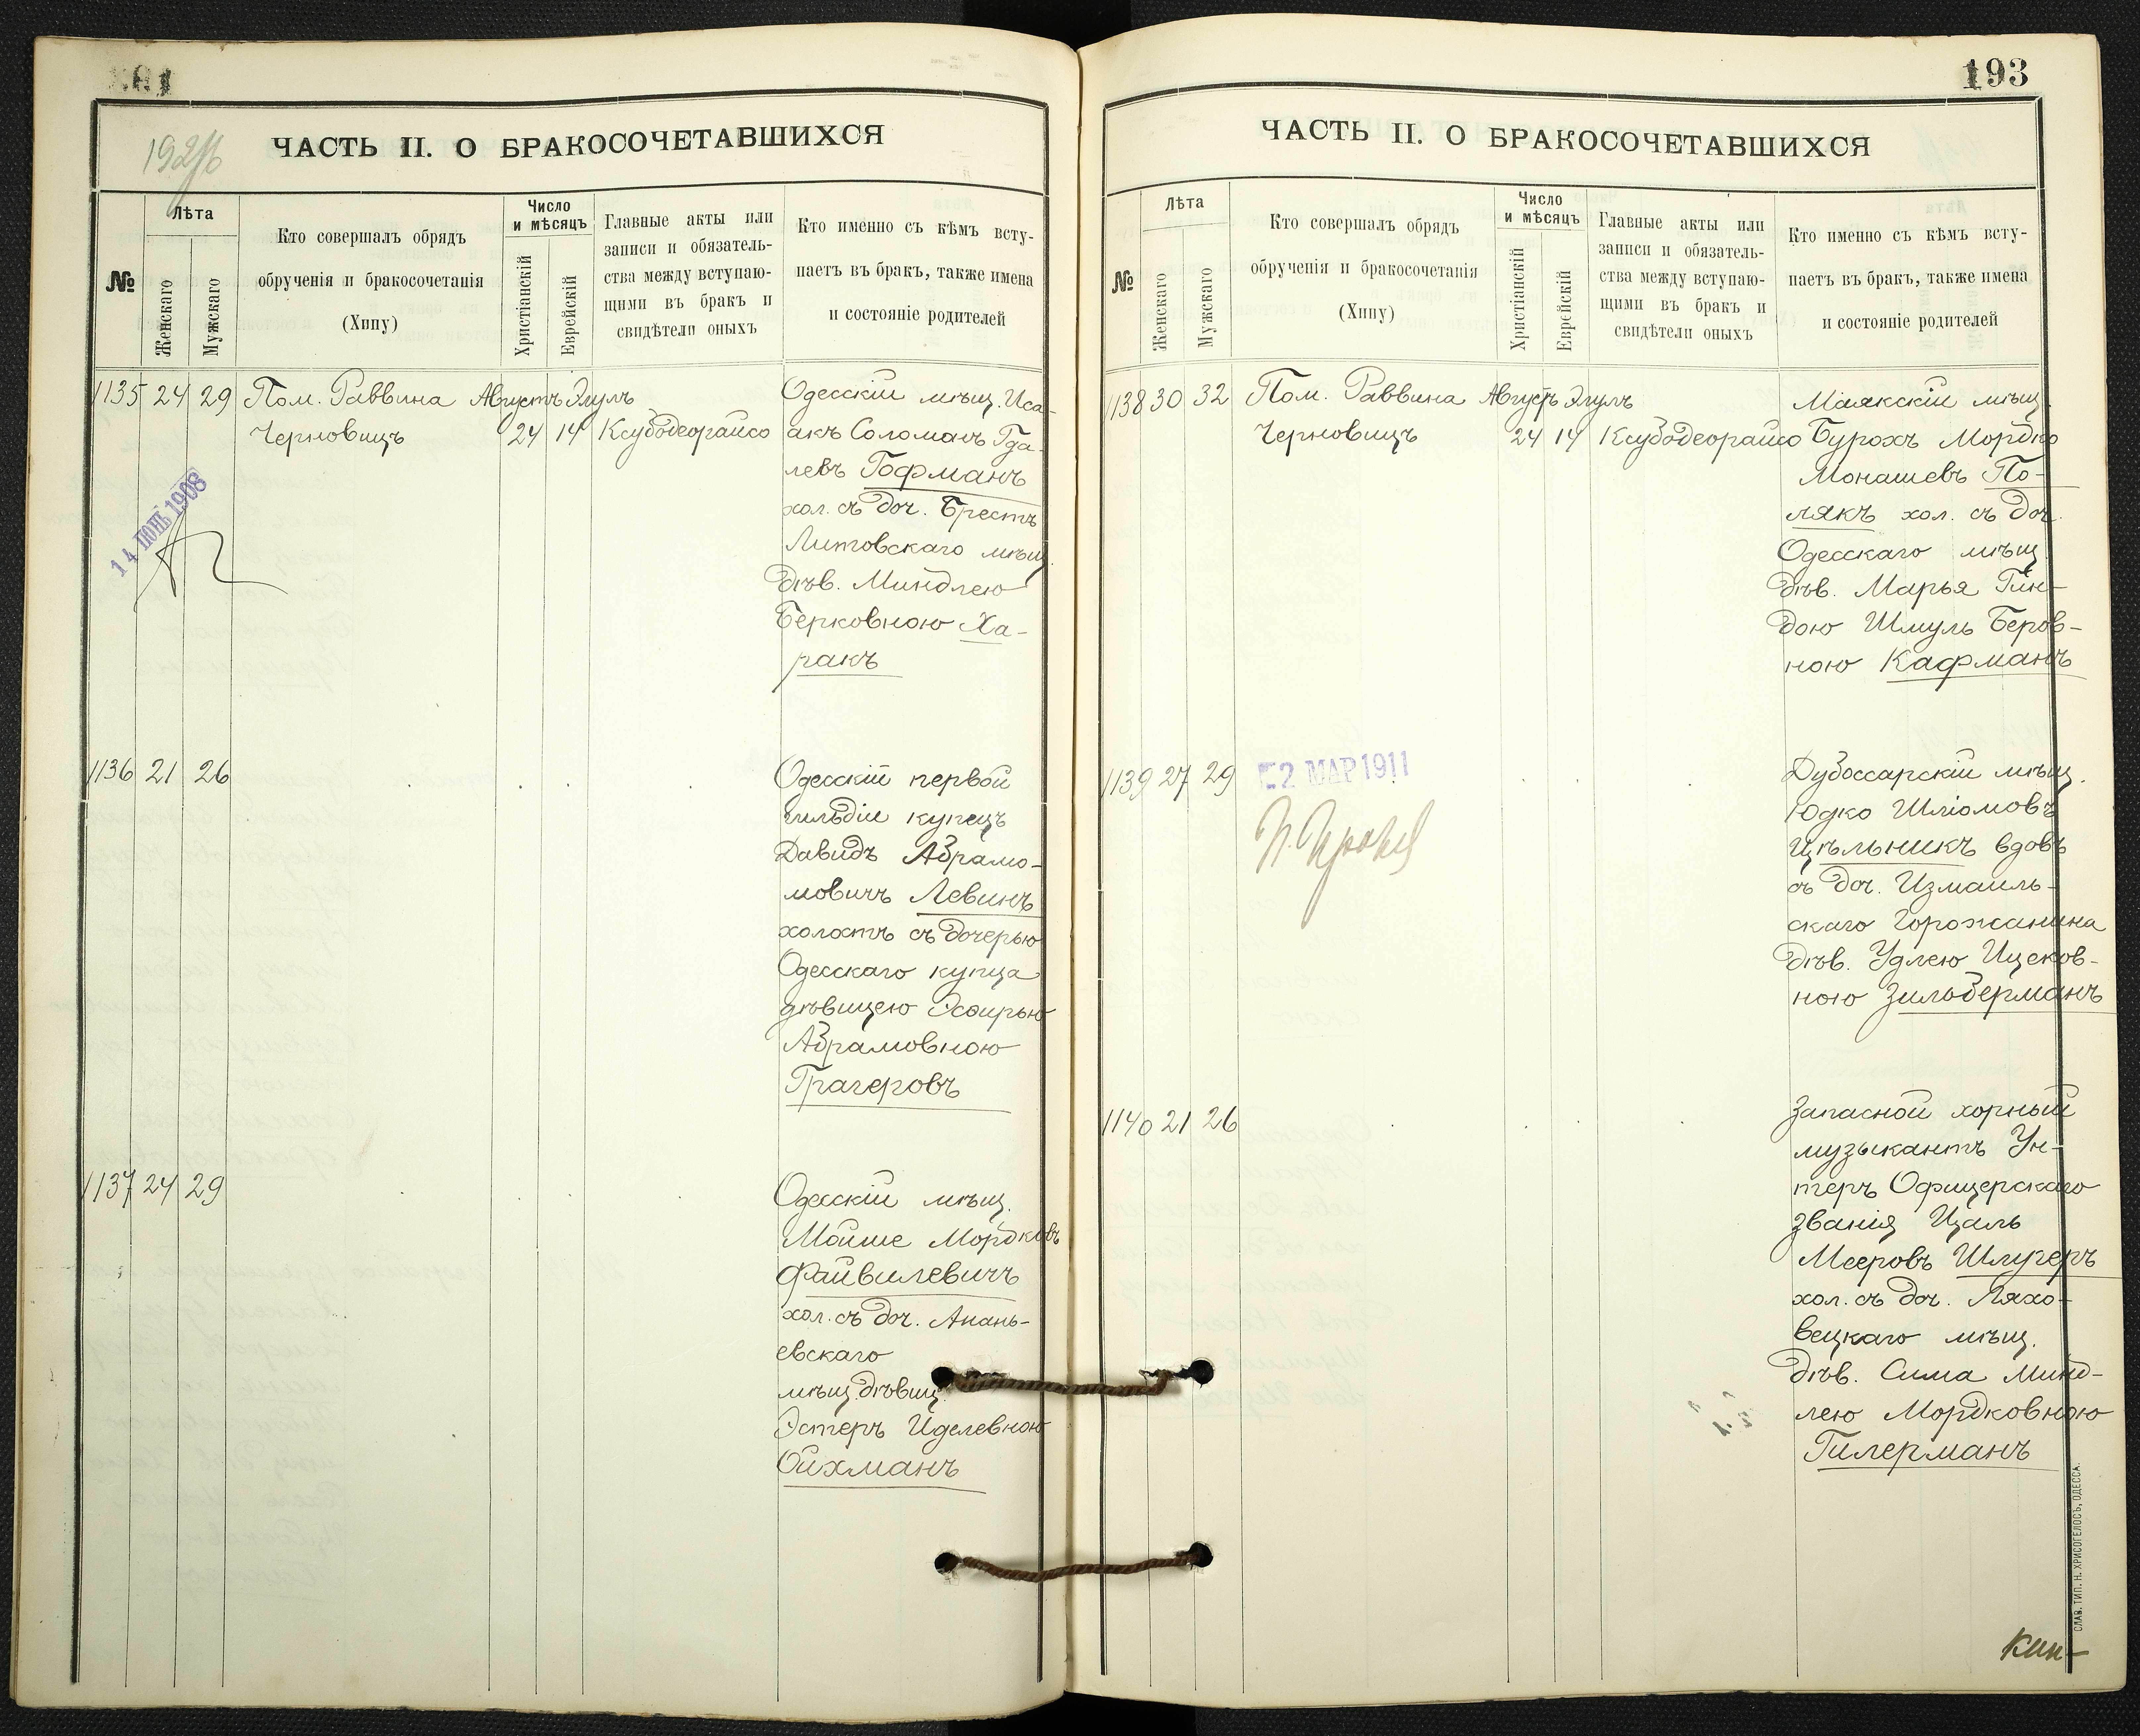 ЧАСТЬ II. О БРАКОСОЧЕТАВШИХСЯ
№
Лѣта
Женскаго
Мужскаго
Кто совершалъ обрядъ
обрученія и бракосочетанія
(Хипу)
Число
и мѣсяцъ
Христіанскій
Еврейскій
Главные акты или
записи и обязатель-
ства между вступаю-
щими въ бракъ и
свидѣтели оныхъ
Кто именно съ кѣмъ всту-
паетъ въ бракъ, также имена
и состояніе родителей
1135 24 29 Пом. Раввина Августъ Элулъ
Черновицъ 24 14 Ксубодеорайсо
14 ІЮНЬ 1908
Одесскій мѣщ. Иса-
акъ Соломанъ Гда-
левъ Гофманъ
хол. съ доч. Брестъ
Литовскаго мѣщ.
дѣв. Миндлею
Берковною Ха-
ракъ
1136 21 26
Одесскій первой
гильдіи купецъ
Давидъ Абрамо-
мовичъ Левинъ
холостъ съ дочерью
Одесскаго купца
дѣвицею Эсѳирью
Абрамовною
Трагеровъ
1137 24 29
Одесскій мѣщ.
Мойше Мордковъ
Файвилевичъ
хол. съ доч. Анань-
евскаго
мѣщ. дѣвиц.
Эстеръ Иделевною
Ойхманъ
193
ЧАСТЬ II. О БРАКОСОЧЕТАВШИХСЯ
№
Лѣта
Женскаго
Мужскаго
Кто совершалъ обрядъ
обрученія и бракосочетанія
(Хипу)
Число
и мѣсяцъ
Христіанскій
Еврейскій
Главные акты или
записи и обязатель-
ства между вступаю-
щими въ бракъ и
свидѣтели оныхъ
Кто именно съ кѣмъ всту-
паетъ въ бракъ, также имена
и состояніе родителей
1138 30 32 Пом. Раввина Августъ Элулъ
Черновицъ 24 14 Ксубодеорайсо
Маякскій мѣщ.
Бурохъ Мордко
Монашевъ По-
лякъ хол. съ доч.
Одесскаго мѣщ.
дѣв. Марья Гин-
дою Шмуль Беров-
ною Кафманъ
1139 27 29
2 МАР 1911
Дубоссарскій мѣщ.
Юдко Шліомовъ
Цѣльникъ вдовъ
съ доч. Измаиль-
скаго Горожанина
дѣв. Удлею Ицеков-
ною Зильберманъ
1140 21 26
Запасной хорный
музыкантъ Ун-
теръ Офицерскаго
званія Цаль
Мееровъ Шлугеръ
хол. съ доч. Ляхо-
вецкаго мѣщ.
дѣв. Сима Минд-
лею Мордковною
Гилерманъ
СЛАВ. ТИП. Н. ХРИСОГЕЛОСЪ, ОДЕССА.
Кин-